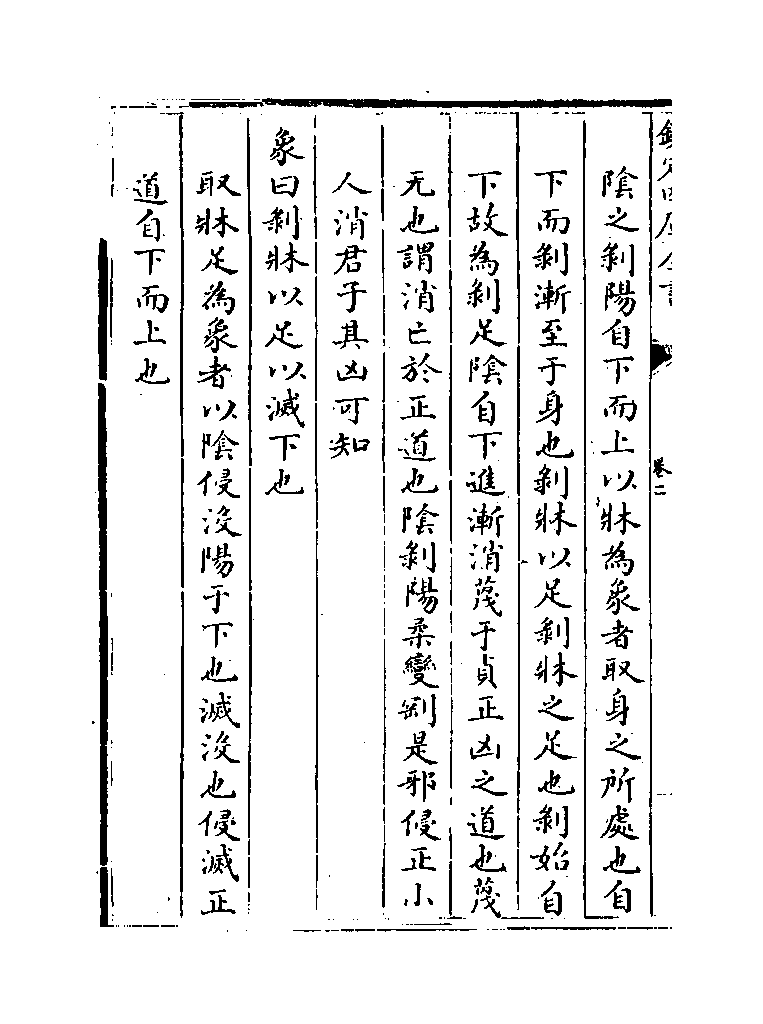 欽定四庫全書
卷二
陰之剝陽自下而上以牀為象者取身之所處也自
下而剝漸至于身也剝牀以足剝牀之足也剝始自
下故為剝足陰自下進漸消蔑于貞正凶之道也蔑
无也謂消亡於正道也陰剝陽柔變剛是邪侵正小
人消君子其凶可知
象曰剝牀以足以滅下也
取牀足為象者以陰侵沒陽于下也滅沒也侵滅正
道自下而上也